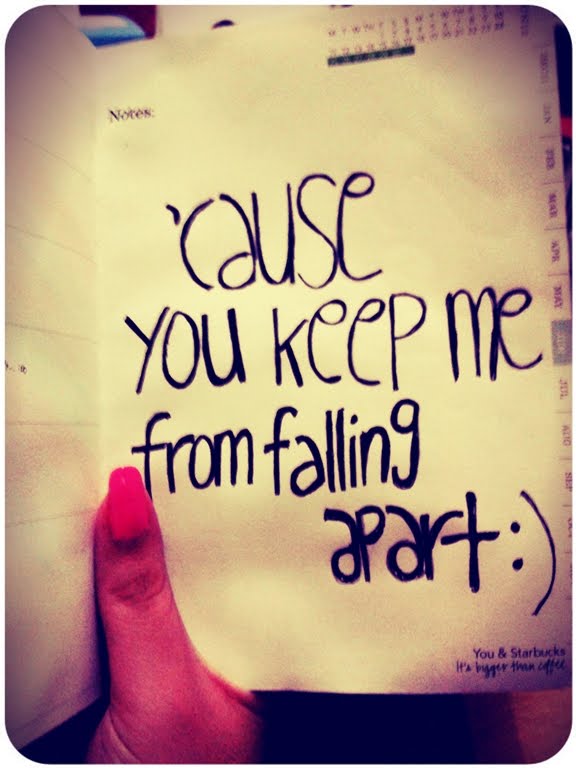 Notes:
'cause
you keep me
from falling
apart :)
You & Starbucks
It's bigger than coffee
JAN
FEB
MAR
APR
MAY
JUL
AUG
SEP